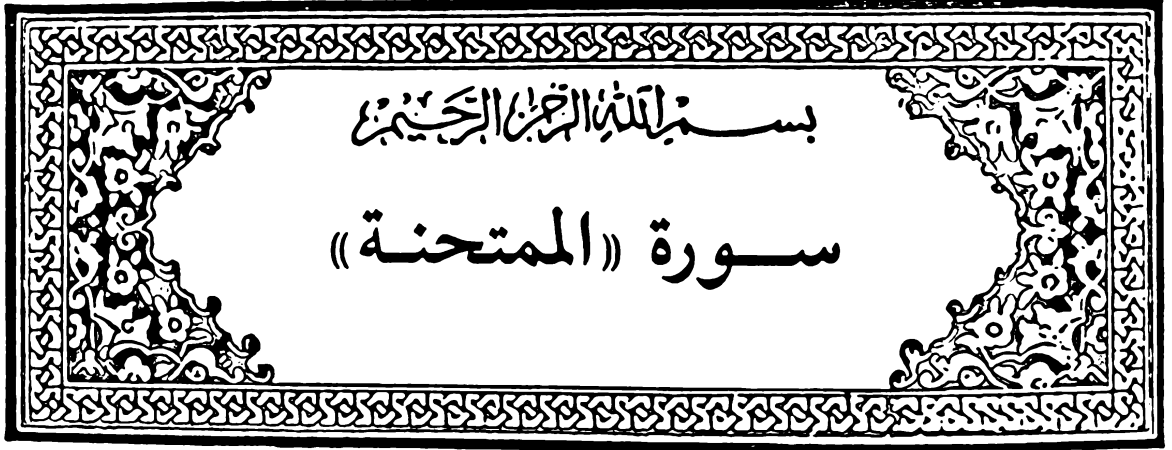 بسم الله الرحمن الرحيم
سورة «الممتحنة»